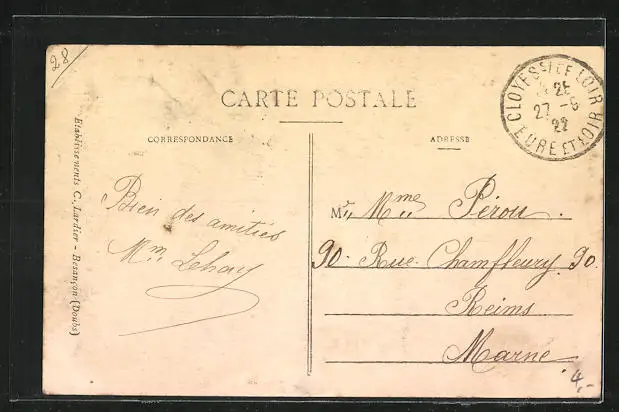 28
CARTE POSTALE
CORRESPONDANCE
ADRESSE
CLOYES S/ LE LOIR
25
27 - 6
22
EURE ET LOIR
Etablissements C. Lardier - Besançon (Doubs)
Bien des amitiés
Mm Lehoy
M Mme Pérou.
90. Rue. Champfleury. 90.
Reims
Marne
4,-